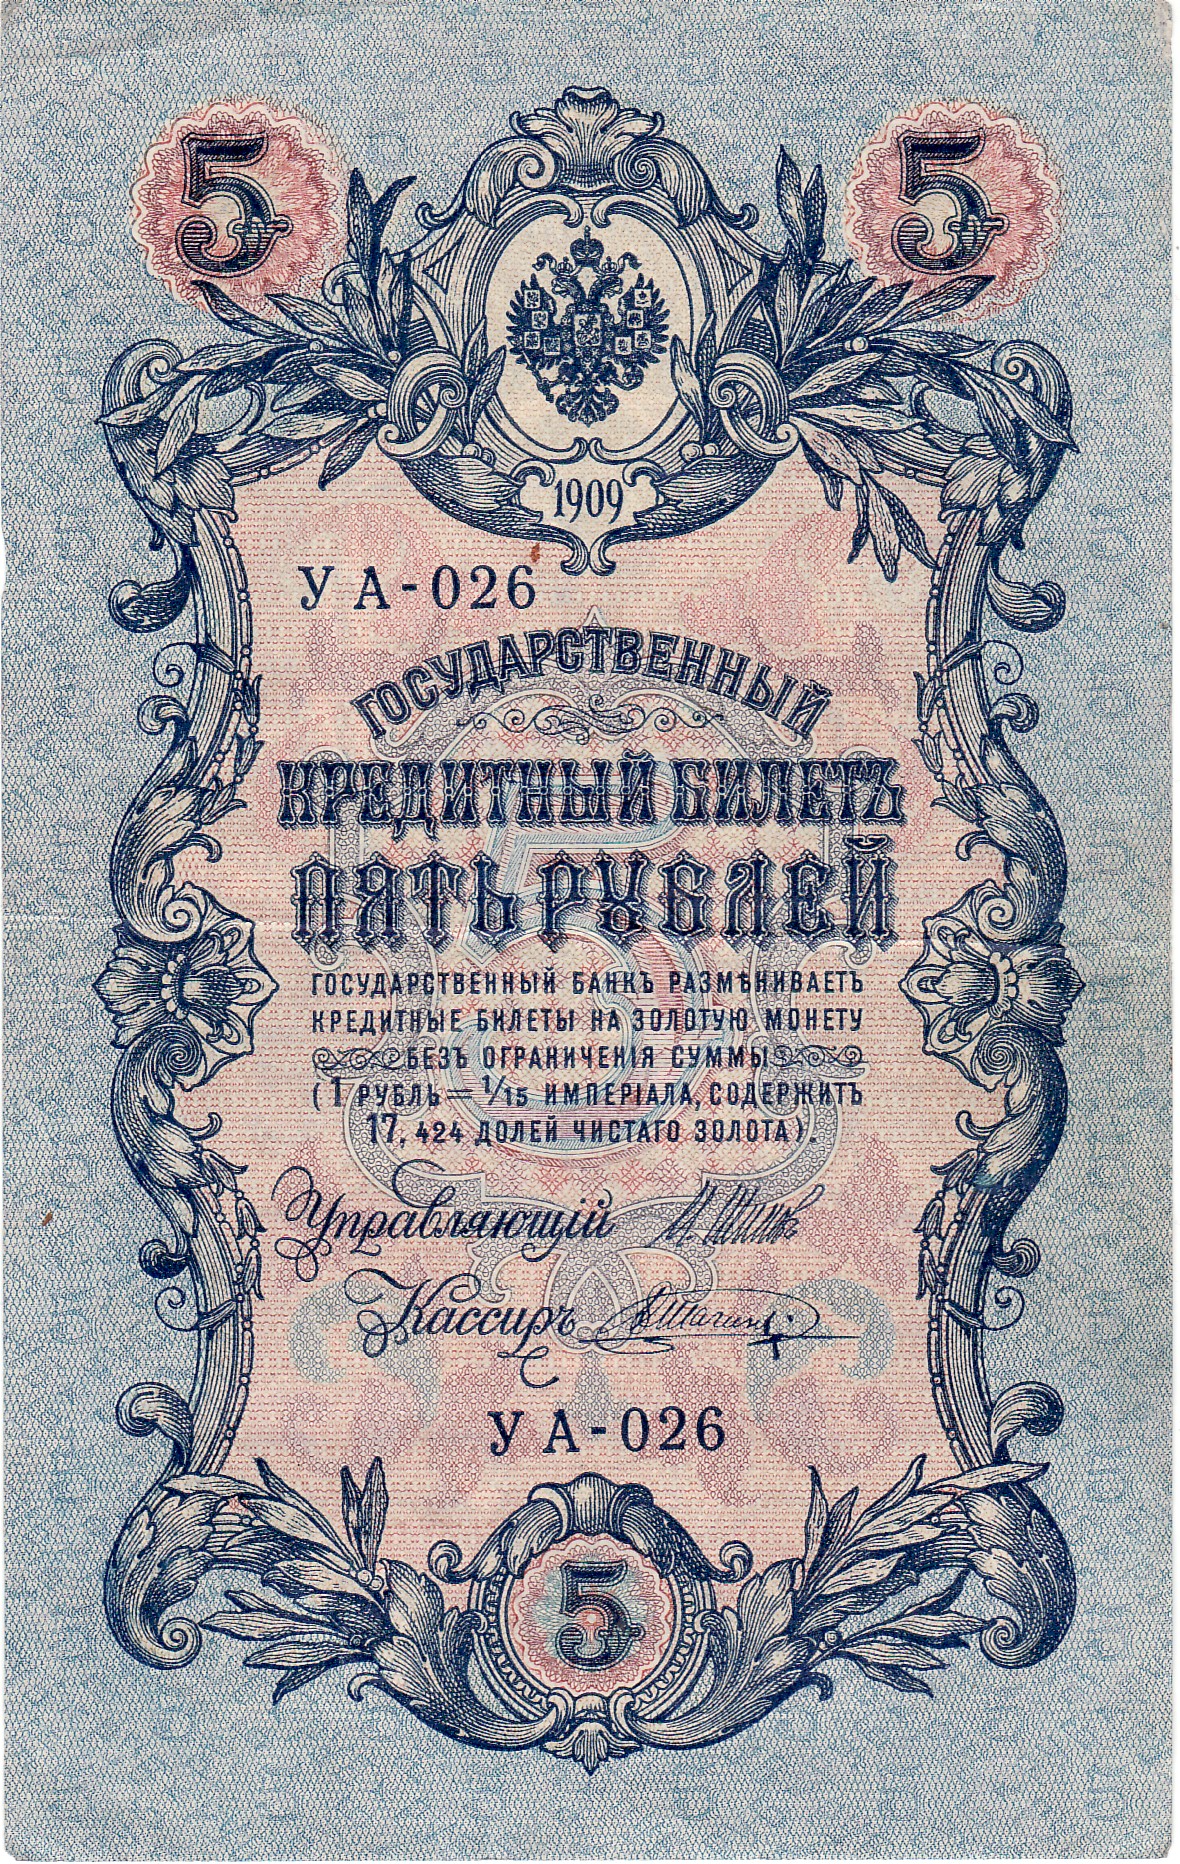 5 5
1909
УА-026
ГОСУДАРСТВЕННЫЙ
КРЕДИТНЫЙ БИЛЕТЪ
ПЯТЬ РУБЛЕЙ
5
ГОСУДАРСТВЕННЫЙ БАНКЪ РАЗМѢНИВАЕТЪ
КРЕДИТНЫЕ БИЛЕТЫ НА ЗОЛОТУЮ МОНЕТУ
БЕЗЪ ОГРАНИЧЕНІЯ СУММЫ
(1 РУБЛЬ = 1/15 ИМПЕРІАЛА, СОДЕРЖИТЪ
17,424 ДОЛЕЙ ЧИСТАГО ЗОЛОТА).
Управляющій И. Шипов
Кассиръ
УА-026
5